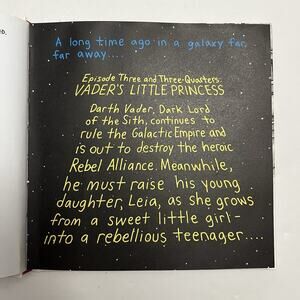 A long time ago in a galaxy far,
far away....
Episode Three and Three-Quarters:
VADER'S LITTLE PRINCESS
Darth Vader, Dark Lord
of the Sith, continues to
rule the Galactic Empire and
is out to destroy the heroic
Rebel Alliance. Meanwhile,
he must raise his young
daughter, Leia, as she grows
from a sweet little girl-
into a rebellious teenager....